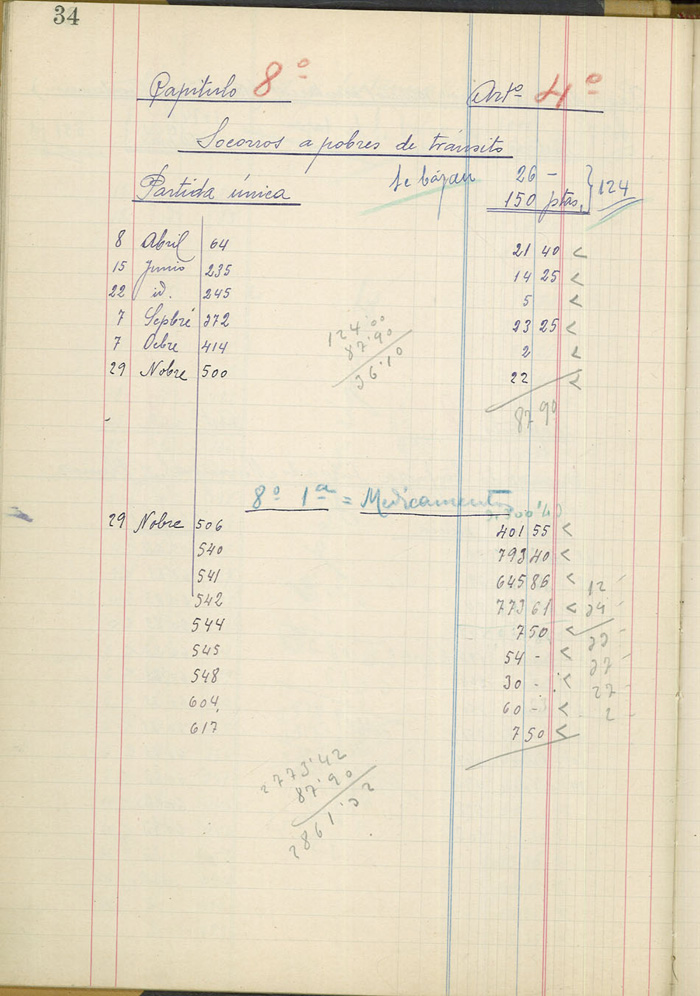 34
Capítulo 8º Artº 4º
Socorros a pobres de tránsito
Partida única Se bajan 26 -
150 ptas. } 124
8 Abril 64 21 40 <
15 Junio 235 14 25 <
22 id. 245 5 <
7 Sepbre 372 23 25 <
7 Ocbre 414 2 <
29 Nobre 500 22 <
124'00
87'90
36'10
87 90
8º 1ª = Medicamentos
29 Nobre 506 401 55 <
540 793 40 <
541 645 86 <
542 773 61 <
544 7 50 <
545 54 - <
548 30 - <
604 60 - <
617 7 50 <
12
24
22
27
27
2
2773'42
87'90
2861'32